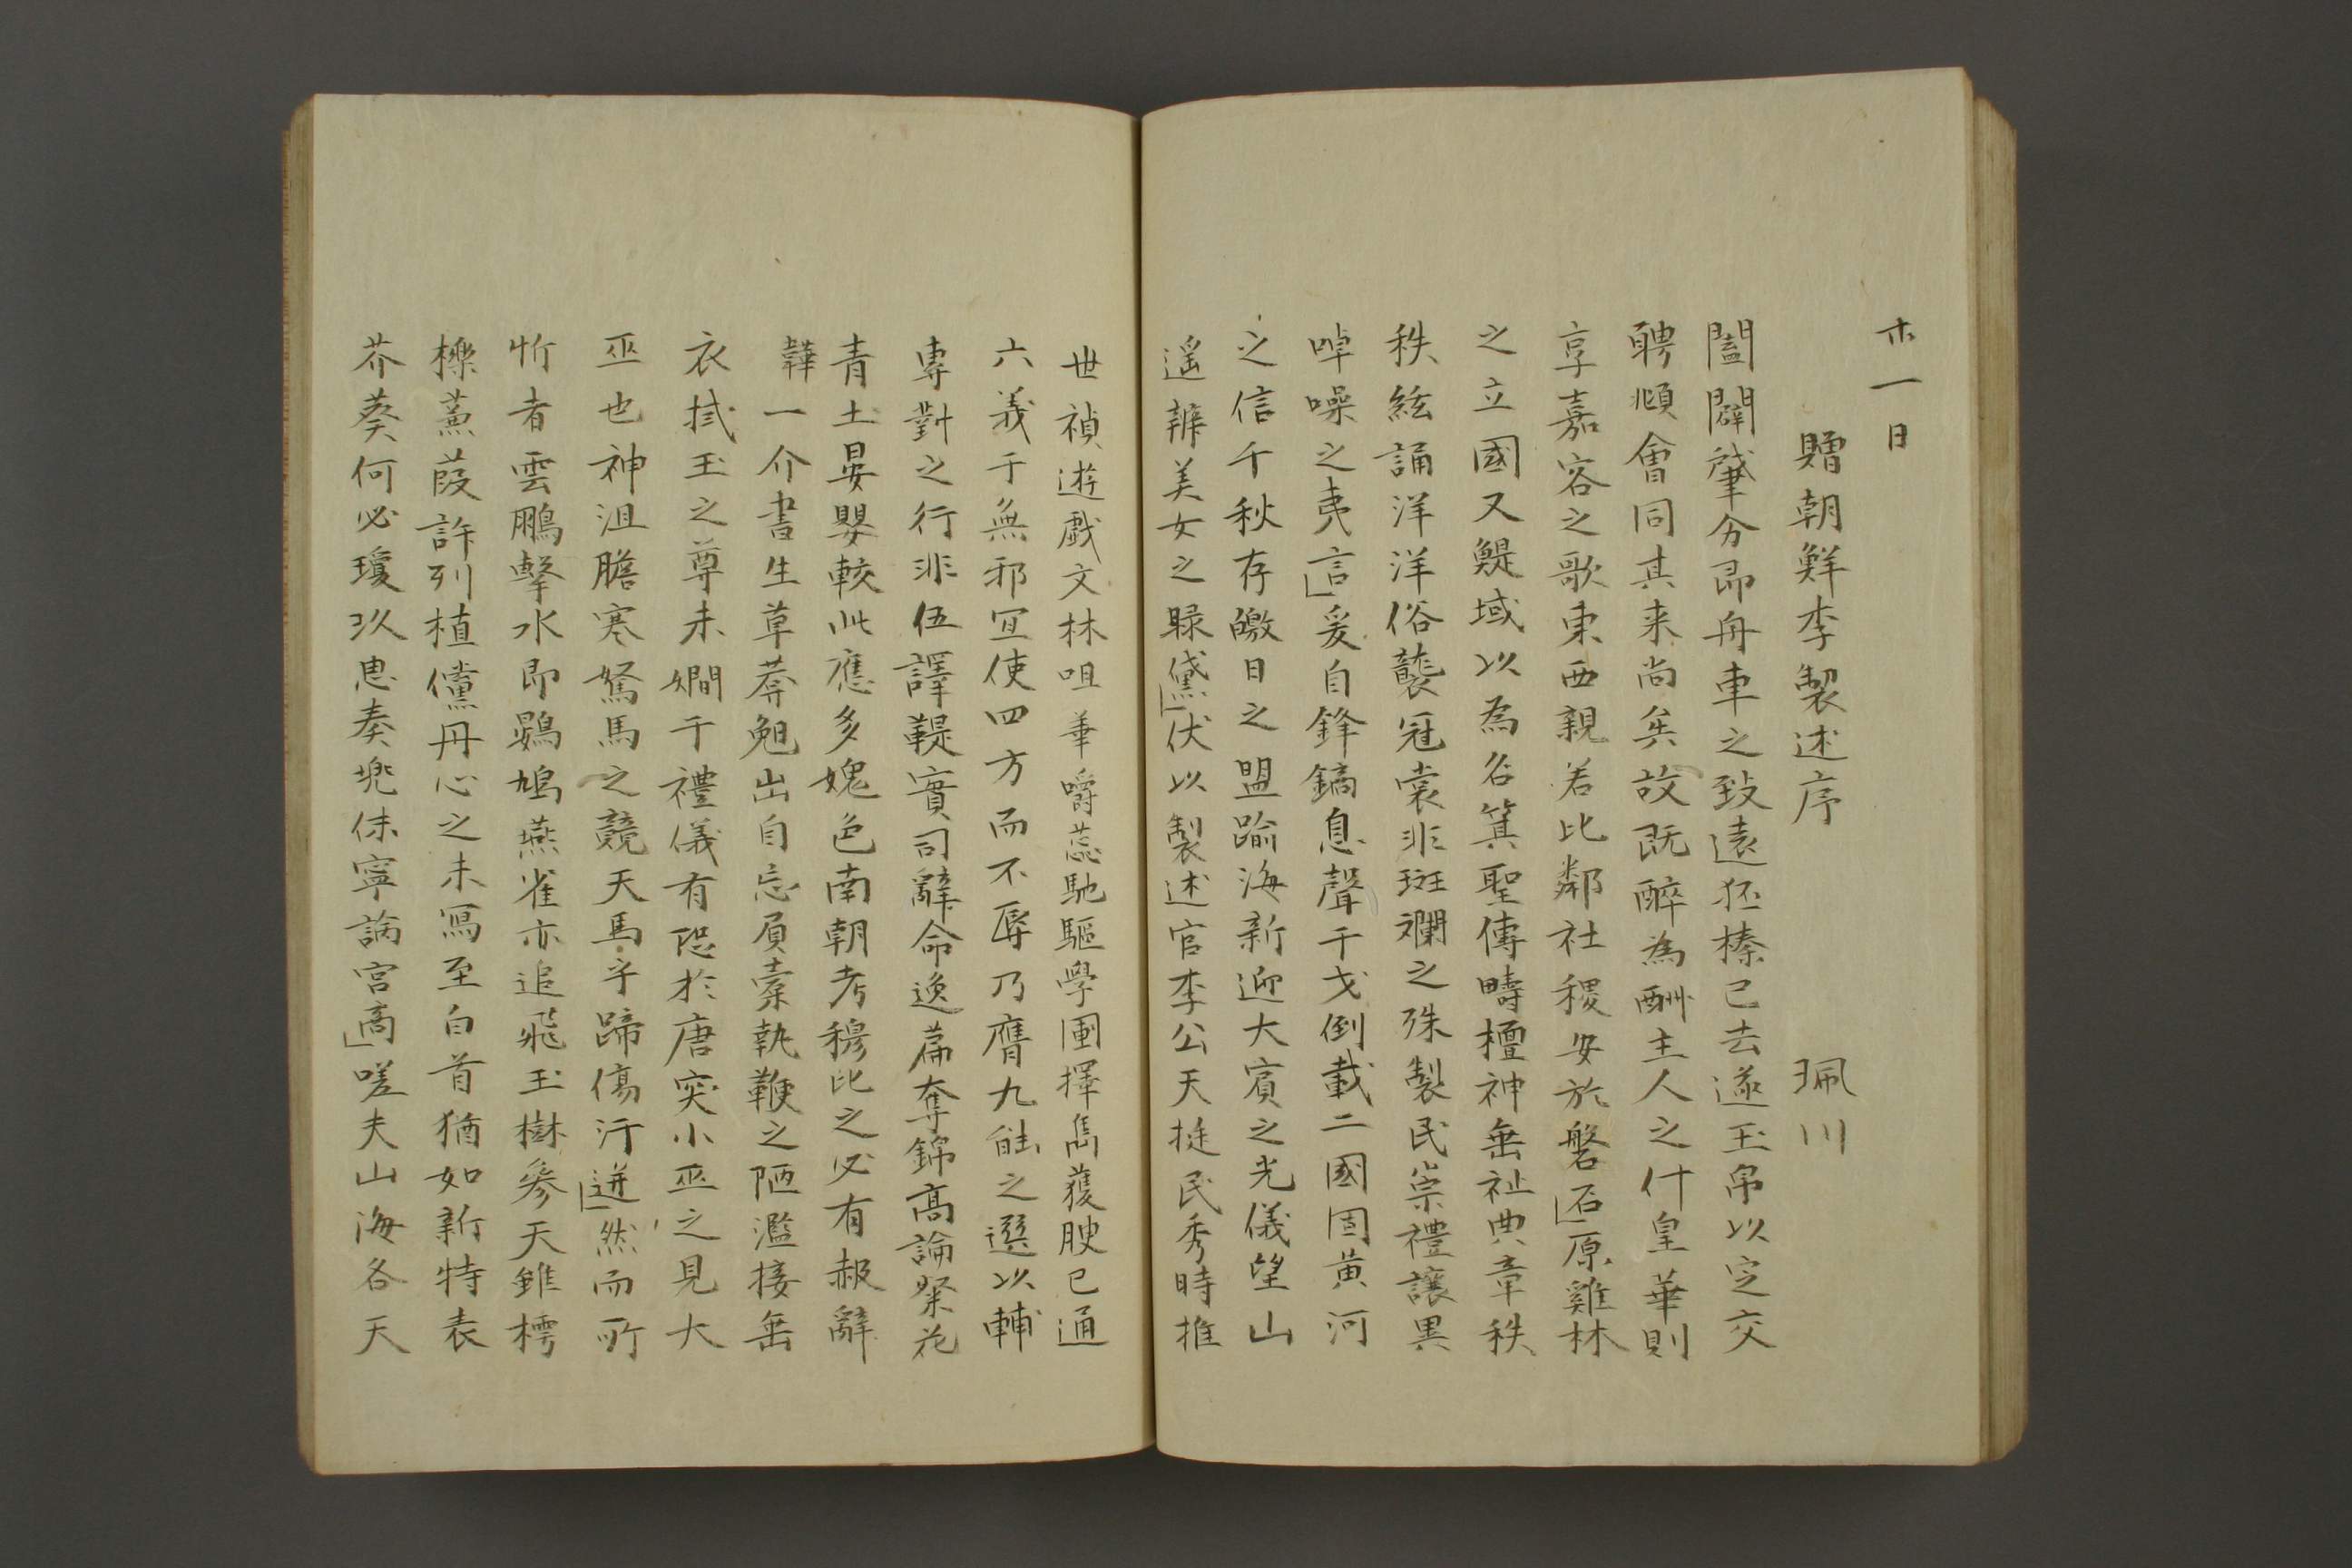 十一日
贈朝鮮李製述序 珮川
闔闢肇分即舟車之致遠狉榛已去遂玉帛以定交
聘頫會同其来尚矣故既醉為酬主人之什皇華則
享嘉客之歌東西親若比鄰社稷安於磐石原雞林
之立國又鯷域以為名箕聖傳疇檀神垂祉典章秩
秩絃誦洋洋俗襲冠裳非斑斕之殊製民崇禮讓異
啅噪之夷言爰自鋒鏑息聲干戈倒載二國固黄河
之信千秋存皦日之盟踰海新迎大賓之光儀望山
遥辨美女之眉黛伏以製述官李公天挺民秀時推
世禎遊戯文林咀華嚼蕊馳驅學圃擇雋獲腴已通
六義于無邪宜使四方而不辱乃膺九能之選以輔
專對之行非伍譯鞮實司辭命逸篇奪錦高論粲花
青土晏嬰較此應多媿色南朝考穆比之必有赧辭
韡一介書生草莽勉出自忘屓橐執鞭之陋濫接垂
衣拭玉之尊未嫻于禮儀有恐於唐突小巫之見大
巫也神沮膽寒駑馬之競天馬乎蹄傷汗迸然而所
忻者雲鵬擊水即鷃鳩燕雀亦追飛玉樹參天雖樗
櫟薰葭許列植儻丹心之未寫至白首猶如新特表
芥葵何必瓊玖思奏兠佅寧論宮商嗟夫山海各天